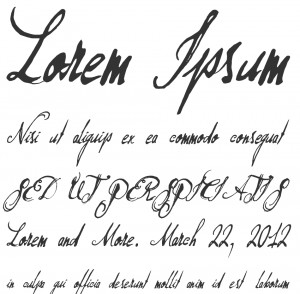 Lorem Ipsum
Nisi ut aliquip ex ea commodo consequat
SED UT PERSPICIATIS
Lorem and More. March 22, 2012
in culpa qui officia deserunt mollit anim id est laborum